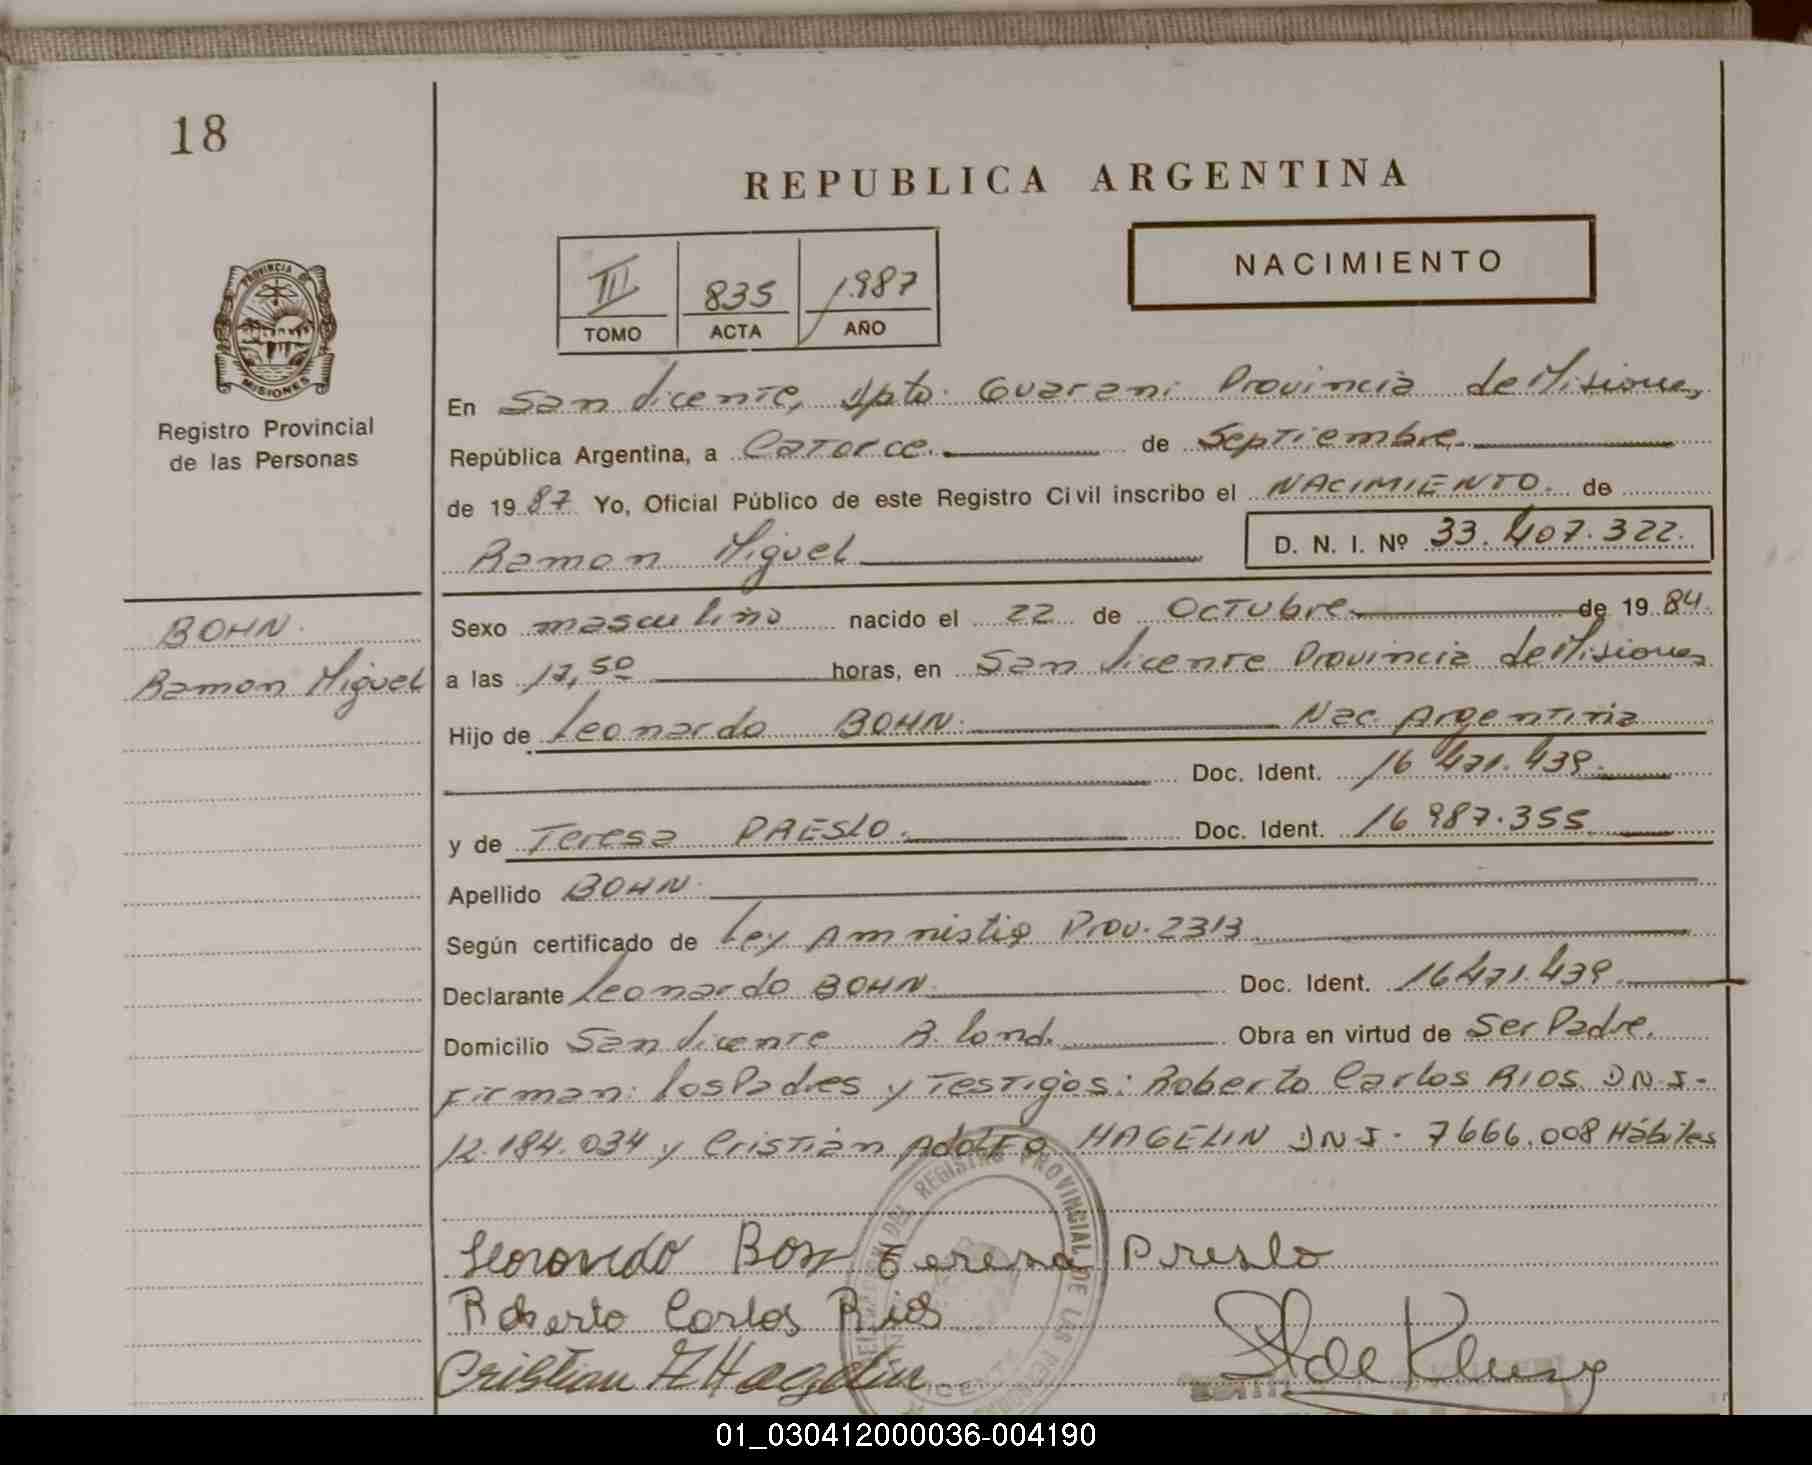 18
REPUBLICA ARGENTINA
NACIMIENTO
III 835 1987
TOMO ACTA AÑO
PROVINCIA DE
MISIONES
Registro Provincial
de las Personas
En San Vicente, Dpto. Guarani Provincia de Misiones
República Argentina, a Catorce. de Septiembre
de 1987 Yo, Oficial Público de este Registro Civil inscribo el NACIMIENTO. de
Ramon Miguel D. N. I. Nº 33.407.322.
BOHN.
Ramon Miguel
Sexo masculino nacido el 22 de Octubre de 1984.
a las 17,50 horas, en San Vicente Provincia de Misiones
Hijo de Leonardo BOHN. Nac. Argentina
Doc. Ident. 16 471.439.
y de Teresa PRESLO. Doc. Ident. 16 987.355
Apellido BOHN.
Según certificado de Ley Amnistia Prov. 2313
Declarante Leonardo BOHN Doc. Ident. 16471.439.
Domicilio San Vicente Obra en virtud de Ser Padre.
Firman: los Padres y Testigos: Roberto Carlos RIOS. D.N.I.
12.184.034 y Cristian Adolfo HAGELIN D.N.I. 7666.008 Hábiles
DEL REGISTRO PROVINCIAL DE LAS
Leonardo Bon Teresa Preslo
Roberto Carlos Rios
Cristian A Hagelin
01_030412000036-004190